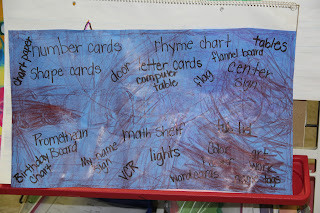 chart paper
number cards
rhyme chart
tables
shape cards
door
letter cards
flannel board
computer table
flag
center sign
Promethean Board
math shelf
Birthday chart
My name sign
VCR
lights
color
art
word cards